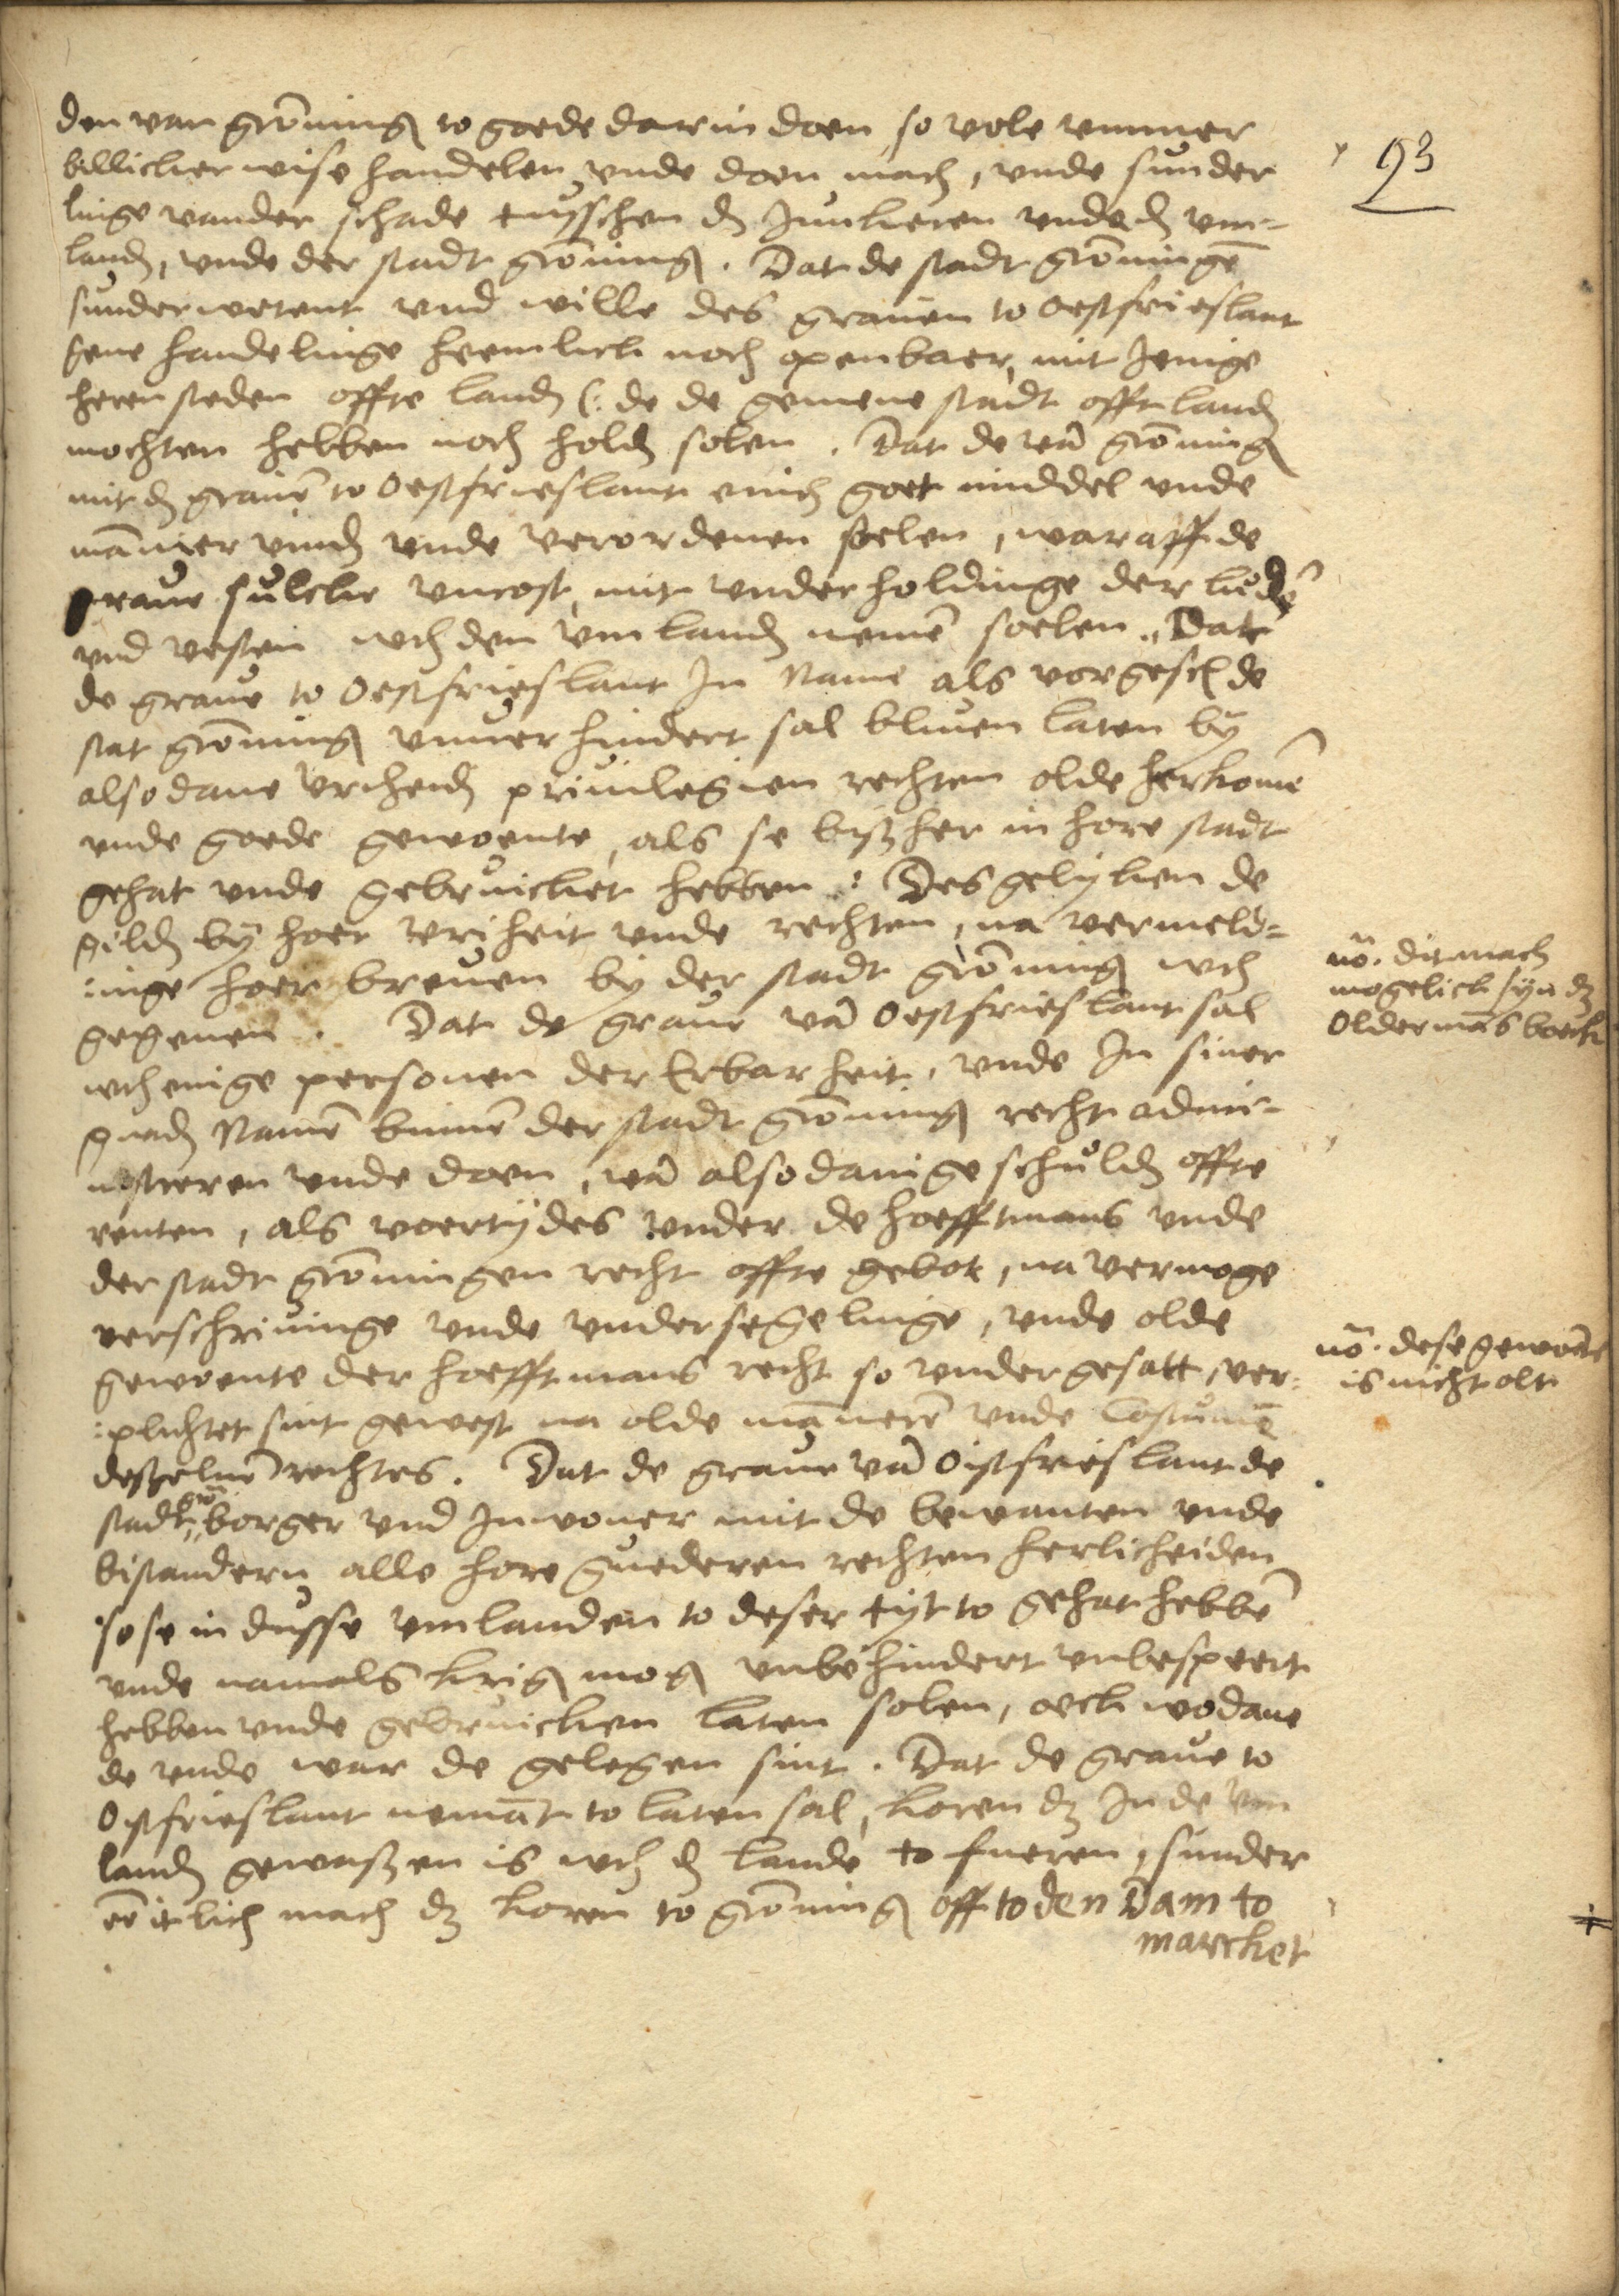 den van gröning to goede darin doen so vole ummer
billicker wise handelen vnde doen mach, vnde sunder
linge vander schade tuysschen d Junkeren vnde d vm-
land, vnde der stadt gröning. Dat de stadt gröningē
sunder wetent vnd wille des grauen to oestfrieslant
gene handelinge heemlick noch openbaer, mit Jenige
heren steden offte land (: de de gemene stadt offt land
mochten hebben noch hold solen. Dat de vā gröning
mit d grauē to Oestfrieslant enich goet middel vnde
māneer vind vnde verordenen soelen, war aff de
graue sulcke vncost, mit vnderholdinge der ludē
vnd vesten vth den vmland nemē soelen. Dat
de graue to Oestfrieslant In Name als vorgesch de
stat gröning vnuerhindert sal bliuen laten by
alsodane vrcheid priuilegien rechten olde herkomē
vnde goede gewoente, als se bisher in hore stadt
gehat vnde gebruicket hebben: Desgelyken de
gild by hoer vriheit vnde rechten, na vermeld=
:inge hoer breuen by der stadt gröning vth
gegeuen. Dat de graue vā Oestfrieslant sal
vth enige personen der Erbarheit, vnde In siner
gnad Namē binnē der stadt gröning recht admi-
nistreren vnde doen, vā alsodanige schuld offte
renten, als voertydes vnder de hoefftmans vnde
der stadt gröningen recht offte gebot, na vermoge
verschriuinge vnde vndersegelinge, vnde olde
gewoente der hoefftmans recht so vndergesatt, ver=
:plichtet sint gewest na olde māneerē vnde Costumē
desseluē rechtes. Dat de graue vā Oistfrieslant de
stadt grö. borger vnd Inwoner mit de bewanten vnde
bistandern alle hore guederen rechten herlicheiden
so se in dusse vmlanden to deser tyt to gehat hebbē
vnde namals krig mog vnbehindert vnbesperrt
hebben vnde gebruicken laten solen, oeck wodane
de vnde war de gelegen sint. Dat de graue to
Oistfrieslant nemāt to laten sal, koren dz In de vm
land gewassen is vth d lande to fueren, sunder
eē itlich mach dz koren to gröning off to den Dam to
marcket
93
nō. dit mach
mogelick syn dz
Oldermās boeck
nō. dese gewoēte
is nicht olt